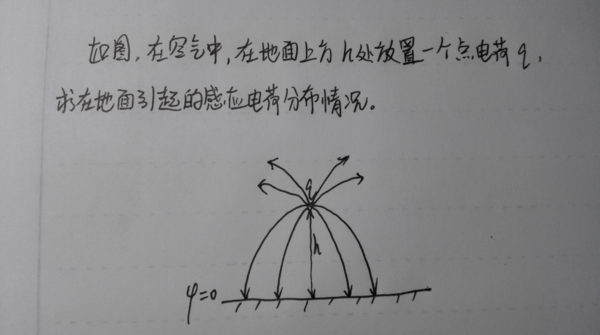 如图,在空气中,在地面上方h处放置一个点电荷q,
求在地面引起的感应电荷分布情况。
q
h
φ=0